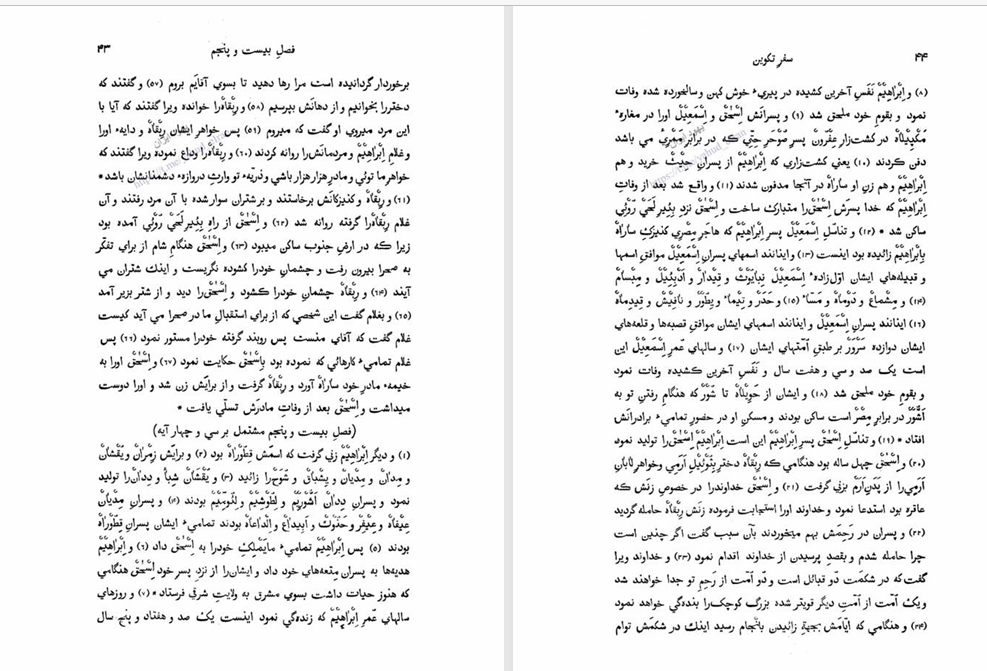 فصل بیست و پنجم ۴۳
برخوردار گردانیده است مرا رها دهید تا بسوي آقایم بروم (۵۷) و گفتند که
دختررا بخوانیم و از دهانش بپرسیم (۵۸) و رِبْقاهرا خوانده ویرا گفتند که آیا با
این مرد میروي او گفت که میروم (۵۹) پس خواهر ایشان رِبْقاه و دایهٔ اورا
و غلام اِبْراهیْم و مردمانشرا روانه کردند (۶۰) و رِبْقاهرا وداع نموده ویرا گفتند که
خواهر ما توئي و مادر هزار هزار باشي و ذریّهٔ تو وارث دروازهٔ دشمنانشان باشد *
(۶۱) و رِبْقاه و کنیزکانش برخاستند و بر شتران سوار شده با آن مرد رفتند و آن
غلام رِبْقاهرا گرفته روانه شد (۶۲) و اِسْحٰق از راهِ بِئیرِ لَحَيْ رُوئِي آمده بود
زیرا که در ارضِ جنوب ساکن میبود (۶۳) و اِسْحٰق هنگام شام از براي تفکّر
به صحرا بیرون رفت و چشمان خودرا کشوده نگریست و اینك شتران مي
آیند (۶۴) و رِبْقاه چشمان خودرا کشود و اِسْحٰقرا دید و از شتر بزیر آمد
(۶۵) و بغلام گفت این شخصي که از براي استقبال ما در صحرا مي آید کیست
غلام گفت که آقاي منست پس روبند گرفته خودرا مستور نمود (۶۶) پس
غلام تمامي کارهائي که نموده بود بِاِسْحٰق حکایت نمود (۶۷) و اِسْحٰق اورا به
خیمهٔ مادر خود سارَاه آورد و رِبْقاه گرفت و از برایش زن شد و اورا دوست
میداشت و اِسْحٰق بعد از وفات مادرش تسلّي یافت *
(فصل بیست و پنجم مشتمل بر سي و چهار آیه)
(۱) و دیگر اِبْراهیْم زني گرفت که اسمش قِطُوراه بود (۲) و برایش زِمْران و یُقْشان
و مِدان و مِدْیان و یِشْباق و شُوَح را زائید (۳) و یُقْشان شِبا و دِدانرا تولید
نمود و پسران دِدان اَشُّورِیْم و لِطُوشیْم و لِئُومیْم بودند (۴) و پسران مِدْیان
عیفاه و عیفِر و حَنُوْث و اَبیداع و اِلْداعاه بودند تمامي ایشان پسران قِطُوراه
بودند (۵) پس اِبْراهیْم تمامي مایَمْلِك خودرا به اِسْحٰق داد (۶) و اِبْراهیْم
هدیهها به پسران مِتعههاي خود داد و ایشانرا از نزدِ پسر خود اِسْحٰق هنگامي
که هنوز حیات داشت بسوي مشرق به ولایت شرقي فرستاد * (۷) و روزهاي
سالهاي عُمرِ اِبْراهیْم که زندگي نمود اینست یك صد و هفتاد و پنج سال
۴۴ سفر تکوین
(۸) و اِبْراهیْم نَفَسِ آخرین کشیده در پیريِ خوش کهن و سالخورده شده وفات
نمود و بقوم خود ملحق شد (۹) و پسرانش اِسْحٰق و اِسْمَعِیْل اورا در مغارهٔ
مَکْپیلاه در کشتزار عِفْرون پسر صُوْحَرِ حِتّي که در برابر مَمْري مي باشد
دفن کردند (۱۰) یعني کشتزاري که اِبْراهیْم از پسران حِیث خرید و هم
اِبْراهیْم و هم زن او سارَاه در آنجا مدفون شدند (۱۱) و واقع شد بعد از وفات
اِبْراهیْم که خدا پسرش اِسْحٰقرا متبارك ساخت و اِسْحٰق نزدِ بِئیرِ لَحَي رُوئِي
ساکن شد * (۱۲) و تناسُلِ اِسْمَعِیْل پسر اِبْراهیْم که هاجَرِ مِصْري کنیزكِ سارَاه
بِاِبْراهیْم زائیده بود اینست (۱۳) و اینانند اسمهاي پسران اِسْمَعِیْل موافق اسمها
و قبیلههاي ایشان اوّل زادهٔ اِسْمَعِیْل نِبایُوْث و قیدار و اَدْبِئیل و مِبْسام
(۱۴) و مِشْماع و دُوماه و مَسّا (۱۵) و حَدَر و تیما و یِطُوْر و نافیش و قیدِماه
(۱۶) اینانند پسران اِسْمَعِیْل و اینانند اسمهاي ایشان موافق قصبهها و قلعههاي
ایشان دوازده سَرْوَر بر طبق اُمّتهاي ایشان (۱۷) و سالهاي عُمرِ اِسْمَعِیْل این
است یك صد و سي و هفت سال و نَفَسِ آخرین کشیده وفات نمود
و بقوم خود ملحق شد (۱۸) و ایشان از حَویْلاه تا شُوْر که هنگام رفتن تو به
اَشُّوْر در برابر مِصْر است ساکن بودند و مسکنِ او در حضور تمامي برادرانش
افتاد * (۱۹) و تناسُلِ اِسْحٰق پسر اِبْراهیْم این است اِبْراهیْم اِسْحٰقرا تولید نمود
(۲۰) و اِسْحٰق چهل ساله بود هنگامي که رِبْقاه دختر بِثُوئیلِ اَرَمي و خواهر لابانِ
اَرَميرا از پَدَنْ اَرَم بزني گرفت (۲۱) و اِسْحٰق خداوندرا در خصوص زنش که
عاقره بود استدعا نمود و خداوند اورا استجابت فرموده زنش رِبْقاه حامله گردید
(۲۲) و پسران در رَحِمَش بهم میخوردند بآن سبب گفت اگر چنین است
چرا حامله شدم و بقصدِ پرسیدن از خداوند اقدام نمود (۲۳) و خداوند ویرا
گفت که در شکمت دو قبائل است و دو اُمّت از رَحِمِ تو جدا خواهند شد
و یك اُمّت از اُمّتِ دیگر قویتر شده بزرگ کوچكرا بندگي خواهد نمود
(۲۴) و هنگامي که ایّامش بجهةِ زائیدن بانجام رسید اینك در شکمش توام